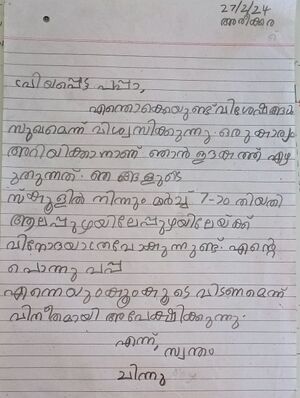 27/2/24
അരീക്കര
പ്രിയപ്പെട്ട പപ്പാ,
എന്തൊക്കെയുണ്ട് വിശേഷങ്ങൾ
സുഖമെന്ന് വിശ്വസിക്കുന്നു. ഒരു കാര്യം
അറിയിക്കാനാണ് ഞാൻ ഈ കത്ത് എഴു
തുന്നത്. ഞങ്ങളുടെ
സ്കൂളിൽ നിന്നും മാർച്ച് 7-ാം തിയതി
ആലപ്പുഴയിലേപ്പുഴയിലേയ്ക്ക്
വിനോദയാത്രപോകുന്നുണ്ട്. എന്റെ
പൊന്നു പപ്പ
എന്നെയും കൂടെ വിടണമെന്ന്
വിനീതമായി അപേക്ഷിക്കുന്നു.
എന്ന്,
സ്വന്തം
ചിന്നു